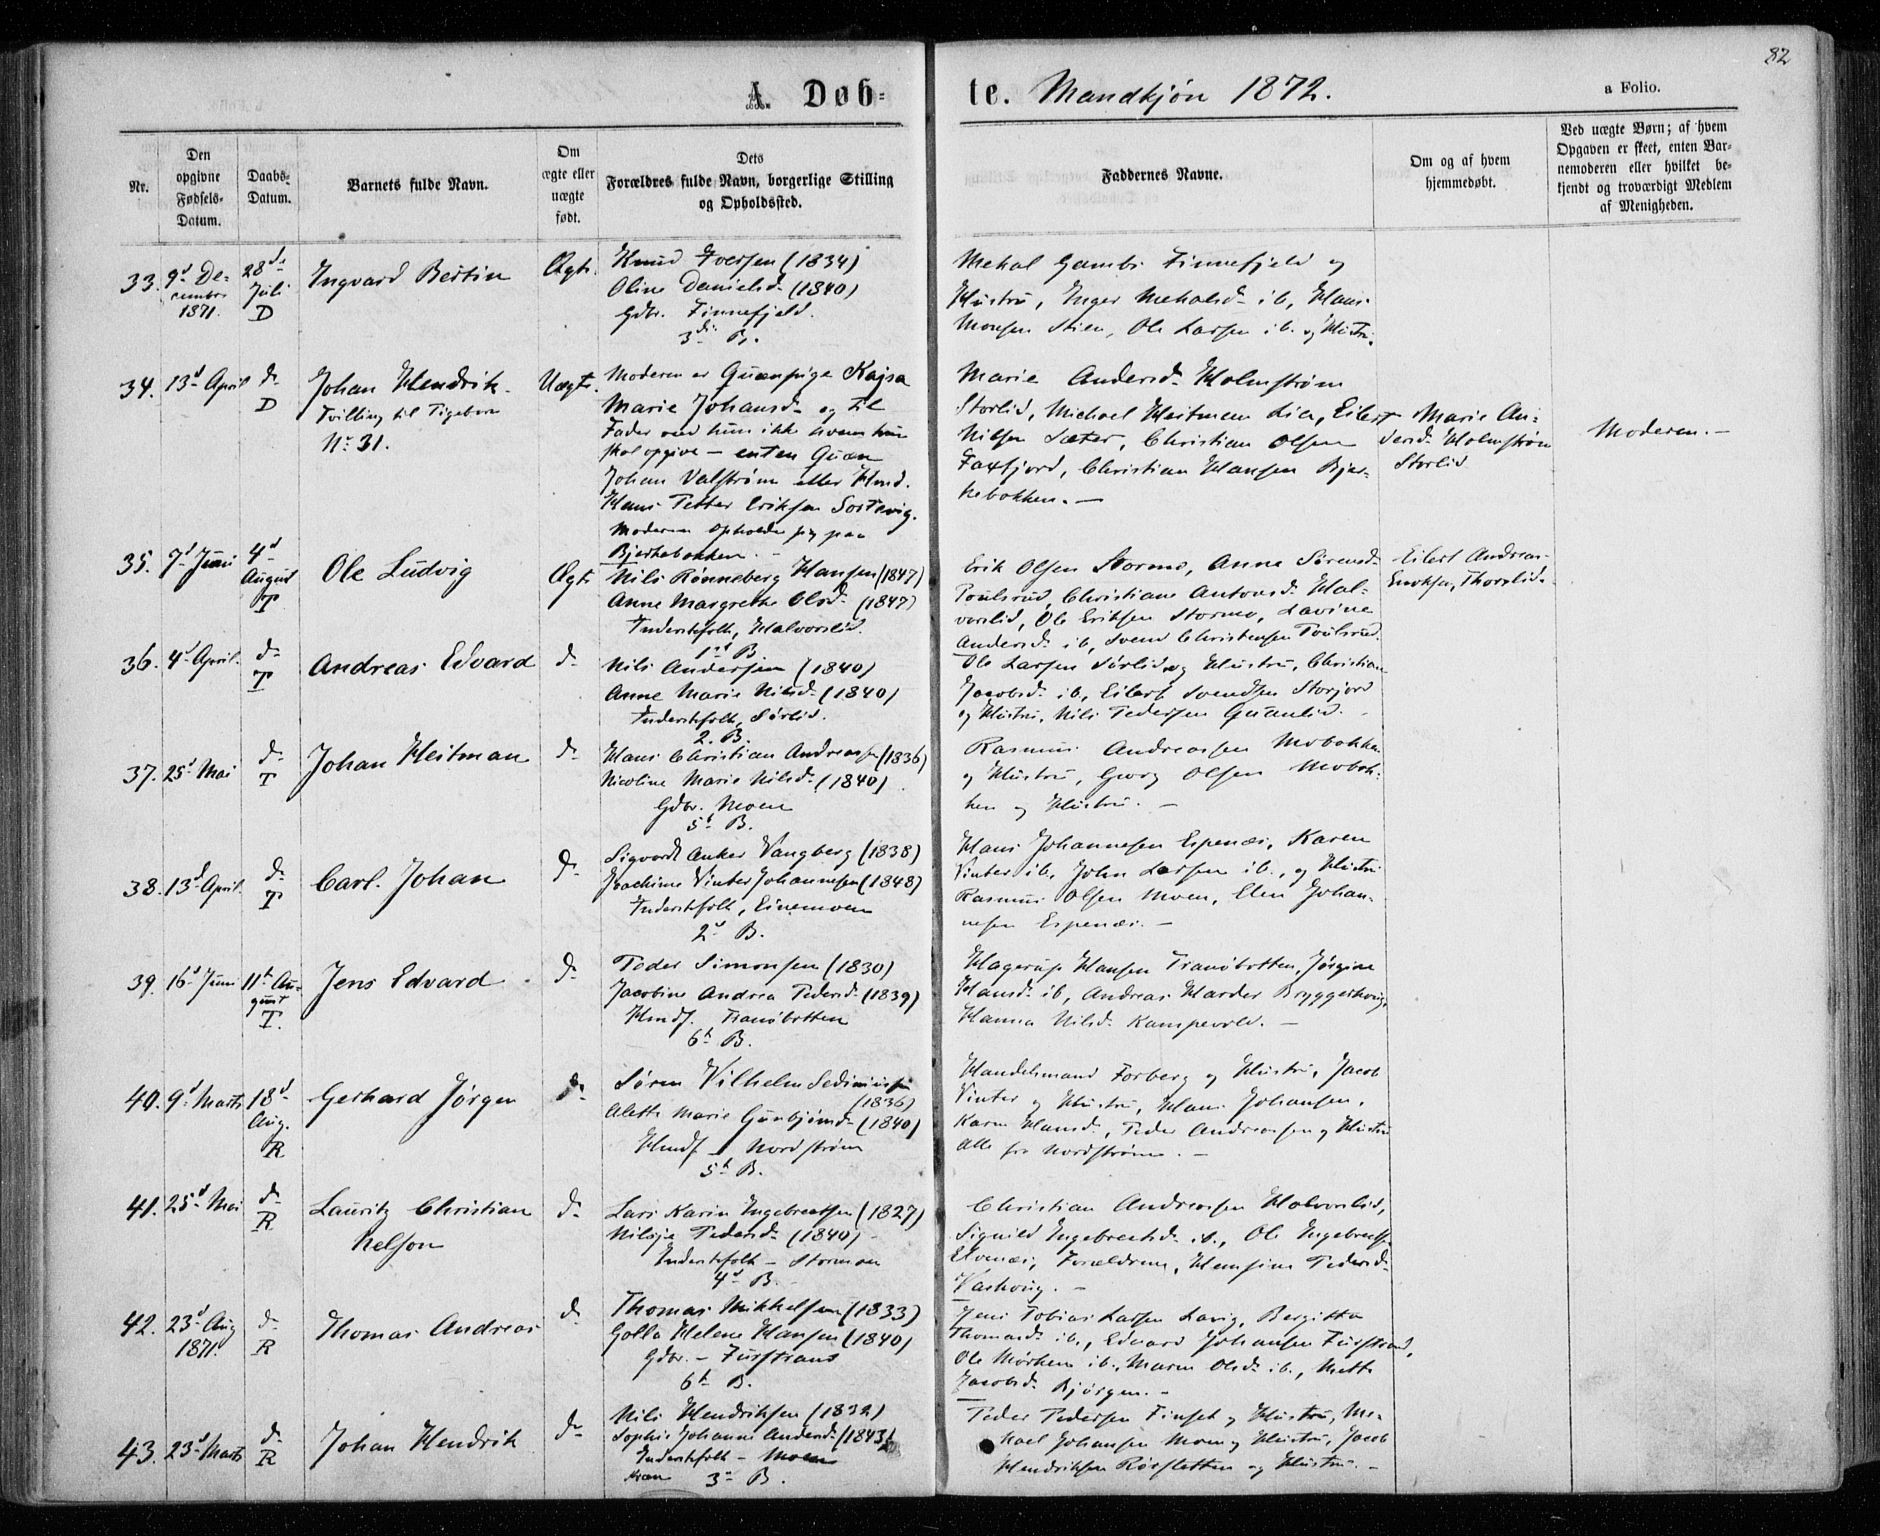 82
A. Døb-
te. Mandkjøn 1872.
a Folio.
Nr.
Den
opgivne
Fødsels-
Datum.
Daabs-
Datum.
Barnets fulde Navn.
Om
ægte eller
uægte
født.
Dets
Forældres fulde Navn, borgerlige Stilling
og Opholdssted.
Faddernes Navne.
Om og af hvem
hjemmedøbt.
Ved uægte Børn; af hvem
Opgaven er skeet, enten Bar-
nemoderen eller hvilket be-
kjendt og troværdigt Medlem
af Menigheden.
33.
9d De-
cember
1871.
28de
Juli
D
Ingvard Bertin
Ægte.
Knud Iversen (1834)
Oline Danielsd. (1840)
Gdbr. Finnefjeld.
3die B.
Mekal Gambs Finnefjeld og
Hustru, Inger Mekalsd. ib, Hans
Monsen Stien, Ole Larsen ib. og Hustru.
34.
13d April
do
D
Johan Hendrik
Tvilling til Pigebarn
No 31.
Uægte.
Moderen er Quænpige Kajsa
Marie Johansd. og til
Fader ved hun ikke hvem hun
skal opgive – enten Quæn
Johan Valstrøm eller Hmd.
Hans Petter Eriksen Sørtevig.
Moderen opholder sig paa
Bjerkebakken. –
Marie Andersd. Holmstrøm
Storlid, Michael Heitman Lien, Eilert
Nilsen Sæter, Christian Olsen
Faxfjord, Christian Hansen Bjer-
kebakken. –
Marie An-
dersd. Holmstrøm
Storlid
Moderen. –
35.
7d Juni
4d
August
T
Ole Ludvig
Ægte
Nils Rønneberg Hansen (1847)
Anne Margrethe Olsd. (1847)
Inderstfolk, Halvorslid.
1ste B.
Erik Olsen Stormo, Anna Sørensd.
Poulsrud, Christiane Antonsd. Hal-
vorslid, Ole Eriksen Stormo, Lavine
Andersd. ib, Svend Christensen Poulsrud.
Eilert Andreas
Enoksen, Thorslid.
36.
4d April.
do
T
Andreas Edvard
do
Nils Andersen (1840)
Anne Marie Nilsd. (1840)
Inderstfolk, Sørlid.
2. B.
Ole Larsen Sørlid og Hustru, Christian
Jacobsd. ib, Eilert Svendsen Storjord
og Hustru, Nils Pedersen Quanlid.
37.
25d Mai
do
T
Johan Heitman
do
Hans Christian Andreassen (1836)
Nicoline Marie Nilsd. (1840)
Gdbr. Moen
5t B.
Rasmus Andreassen Mobakken
og Hustru, Georg Olsen Mobak-
ken og Hustru. –
38.
13d April.
do
T
Carl Johan
do
Sigvardt Anker Vangberg (1838)
Joachime Vinter Johannesen (1848)
Inderstfolk, Einemoen
2d B.
Hans Johannesen Espenæs, Karen
Vinter ib, John Larsen ib., og Hustru
Rasmus Olsen Moen, Elen Johan-
nesen Espenæs. –
39.
16d Juni
11t Au-
gust
T.
Jens Edvard
do
Peder Simonsen (1830)
Jacobine Andrea Pedersd. (1839)
Hmdf. Tranøbotten
6t B.
Hagerup Hansen Tranøbotten, Jørgine
Hansd. ib, Andreas Harder Bryggerhaug,
Hanna Nilsd. Kampevold. –
40.
9d Marts
18d
Aug.
R
Gerhard Jørgen
do
Søren Vilhelm Sediniussen
(1836)
Aletta Marie Gunbjørnsd. (1840)
Hmdf. Nordstrøm
5t B.
Handelsmand Forberg og Hustru, Jacob
Vinter og Hustru, Hans Johansen,
Karen Hansd., Peder Andreassen og Hustru
alle fra Nordstrøm. –
41.
25d Mai
do
R
Lauritz Christian
Nelson
do
Lars Karin Ingebretsen (1827)
Nilsje Pedersd. (1840)
Inderstfolk – Stormoen
4d B. –
Christian Andreassen Halvorslid,
Signild Ingebretsd. ib., Ole Ingebretsen
Elvenæs, Forældrene, Hemsine Pedersd.
Vashaug. –
42.
23d Aug
1871.
do
R
Thomas Andreas
do
Thomas Mikkelsen (1833)
Golla Helene Hansen (1840)
Gdbr. – Furstrand
6t B.
Jens Tobias Larsen Lavig, Bergitta
Thomasd. ib., Edvard Johansen Furstrand,
Ole Mørken ib., Maren Olsd. ib., Mette
Jacobsd. Bjørgen. –
43.
23d Marts
do
R
Johan Hendrik
do
Nils Hendriksen (1832)
Sophie Johanna Andersd. (1843)
Inderstfolk – Moen
3die B.
Peder Pedersen Finset og Hustru, Me-
kael Johansen Moen og Hustru, Jacob
Hendriksen Røsletten og Hustru. –